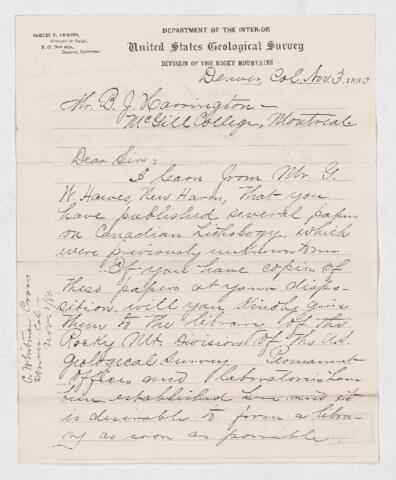 SAMUEL F. EMMONS,
Geologist in charge,
P. O. Box
Denver, Colorado.
DEPARTMENT OF THE INTERIOR
United States Geological Survey
DIVISION OF THE ROCKY MOUNTAINS
Denver, Col. Nov. 3, 1880
Mr. B. J. Harrington—
McGill College, Montreal
Dear Sir:
I learn from Mr. G.
W. Hawes, New Haven, that you
have published several papers
on Canadian Lithology which
were previously unknown to me.
If you have copies of
these papers at your dispo-
sition, will you kindly give
them to the library of the
Rocky Mt. Division of the U.S.
Geological Survey. Permanent
offices and laboratories have
been established here and it
is desirable to form a libra-
ry as soon as possible.
C. Whitman Cross
Denver Col.
Nov 3/80